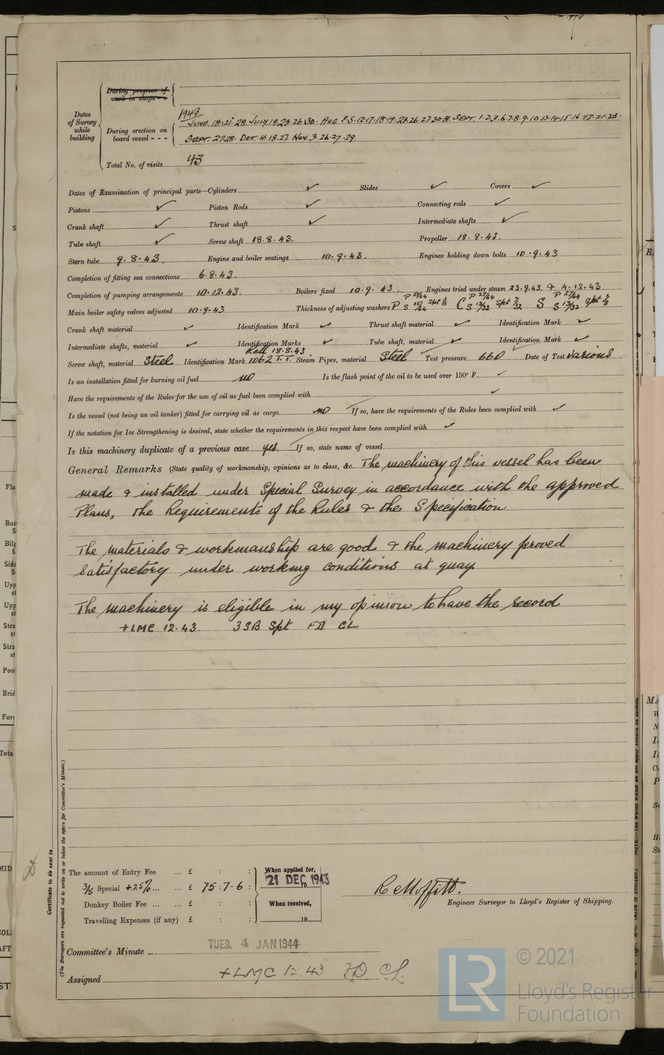 During progress of work in shops
Dates of Survey while building
1943
During erection on board vessel - - -
June 18.21.28. July 19.23.26.30. Aug 3.5.12.17.18.19.23.26.27.30.31. Sept. 1.2.3.6.7.8.9.10.13.14.15.16.17.21.23.
Sept. 27.28. Oct. 4.18.27. Nov. 3.26.27.29.
Total No. of visits 43
Dates of Examination of principal parts—Cylinders ✓ Slides ✓ Covers ✓
Pistons ✓ Piston Rods ✓ Connecting rods ✓
Crank shaft ✓ Thrust shaft ✓ Intermediate shafts ✓
Tube shaft ✓ Screw shaft 18.8.43. Propeller 18.8.43.
Stern tube 9.8.43. Engine and boiler seatings 10.9.43. Engines holding down bolts 10.9.43
Completion of fitting sea connections 6.8.43.
Completion of pumping arrangements 10.12.43. Boilers fixed 10.9.43. Engines tried under steam 23.9.43. & 4.12.43.
Main boiler safety valves adjusted 10.9.43 Thickness of adjusting washers
Crank shaft material ✓ Identification Mark ✓ Thrust shaft material ✓ Identification Mark ✓
Intermediate shafts, material ✓ Identification Marks ✓ Tube shaft, material ✓ Identification Mark ✓
Screw shaft, material Steel Identification Mark 1062 T.T. 18.8.43 Steam Pipes, material Steel Test pressure 660 Date of Test Various
Is an installation fitted for burning oil fuel no Is the flash point of the oil to be used over 150° F. ✓
Have the requirements of the Rules for the use of oil as fuel been complied with ✓
Is the vessel (not being an oil tanker) fitted for carrying oil as cargo no If so, have the requirements of the Rules been complied with ✓
If the notation for Ice Strengthening is desired, state whether the requirements in this respect have been complied with ✓
Is this machinery duplicate of a previous case yes. If so, state name of vessel
General Remarks (State quality of workmanship, opinions as to class, &c. The machinery of this vessel has been
made & installed under Special Survey in accordance with the approved
Plans, the Requirements of the Rules & the Specification
The materials & workmanship are good & the machinery proved
satisfactory under working conditions at quay
The machinery is eligible in my opinion to have the record
+LMC 12.43. 3SB Spt FD CL
The amount of Entry Fee ... £ : :
3/5 Special +25% ... ... £ 75.7.6
Donkey Boiler Fee ... ... £ : :
Travelling Expenses (if any) £ : :
When applied for,
21 DEC 1943
When received,
19
R Moffitt.
Engineer Surveyor to Lloyd's Register of Shipping.
Committee's Minute TUES. 4 JAN 1944
Assigned +LMC 12.43 FD CL
Certificate to be sent to
(The Surveyors are requested not to write on or below the space for Committee's Minute.)
LR
© 2021
Lloyd's Register
Foundation